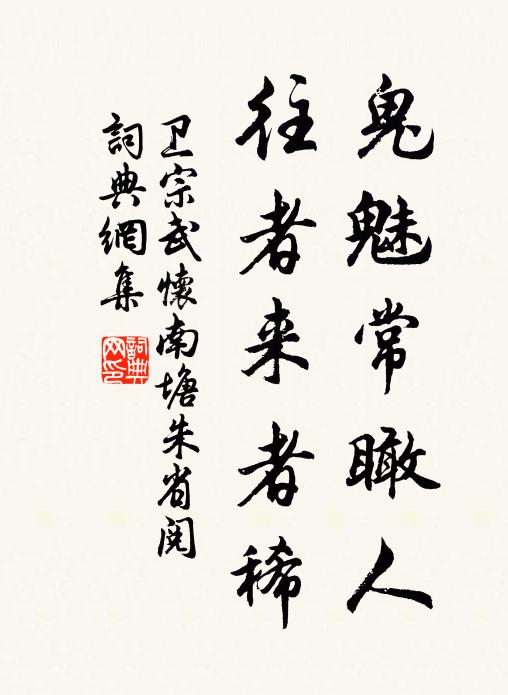 鬼魅常瞰人
往者来者稀
卫宗武懷南塘朱省閱
詞典網集
詞典网印